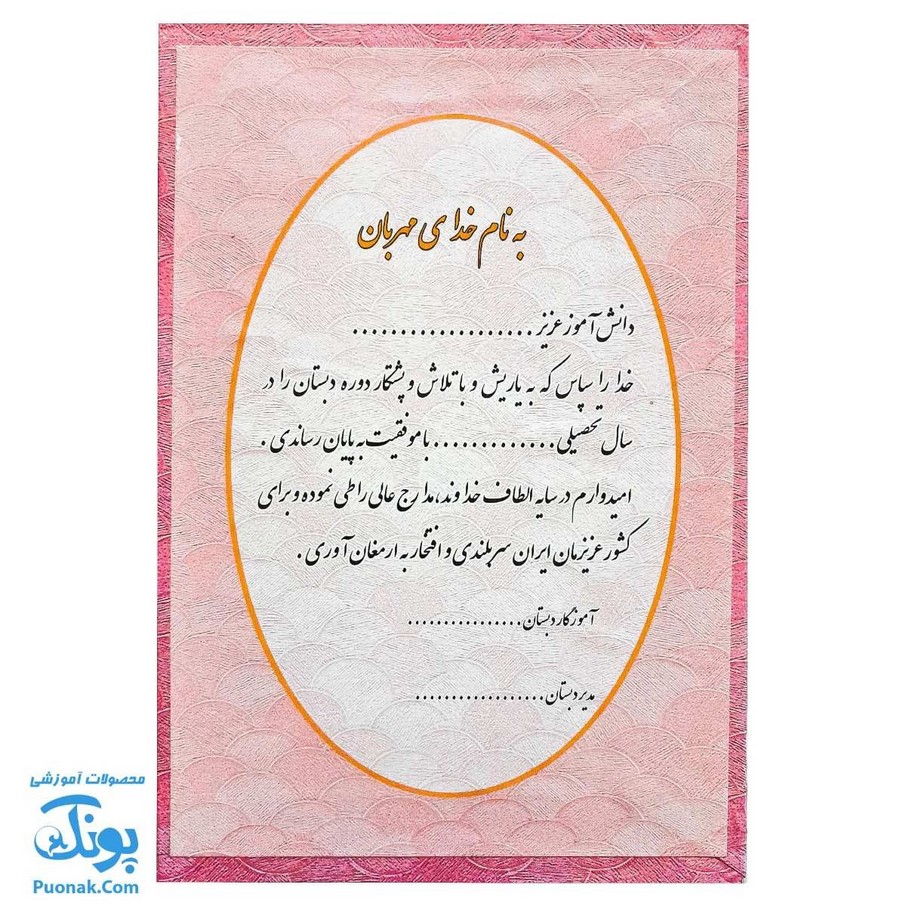 به نام خدای مهربان
دانش آموز عزیز ...................
خدا را سپاس که به یاریش و با تلاش و پشتکار دوره دبستان را در
سال تحصیلی............. با موفقیت به پایان رساندی .
امیدوارم در سایه الطاف خداوند، مدارج عالی را طی نموده و برای
کشور عزیزمان ایران سربلندی و افتخار به ارمغان آوری .
آموزگار دبستان................
مدیر دبستان..................
محصولات آموزشی
پونک
Puonak.Com